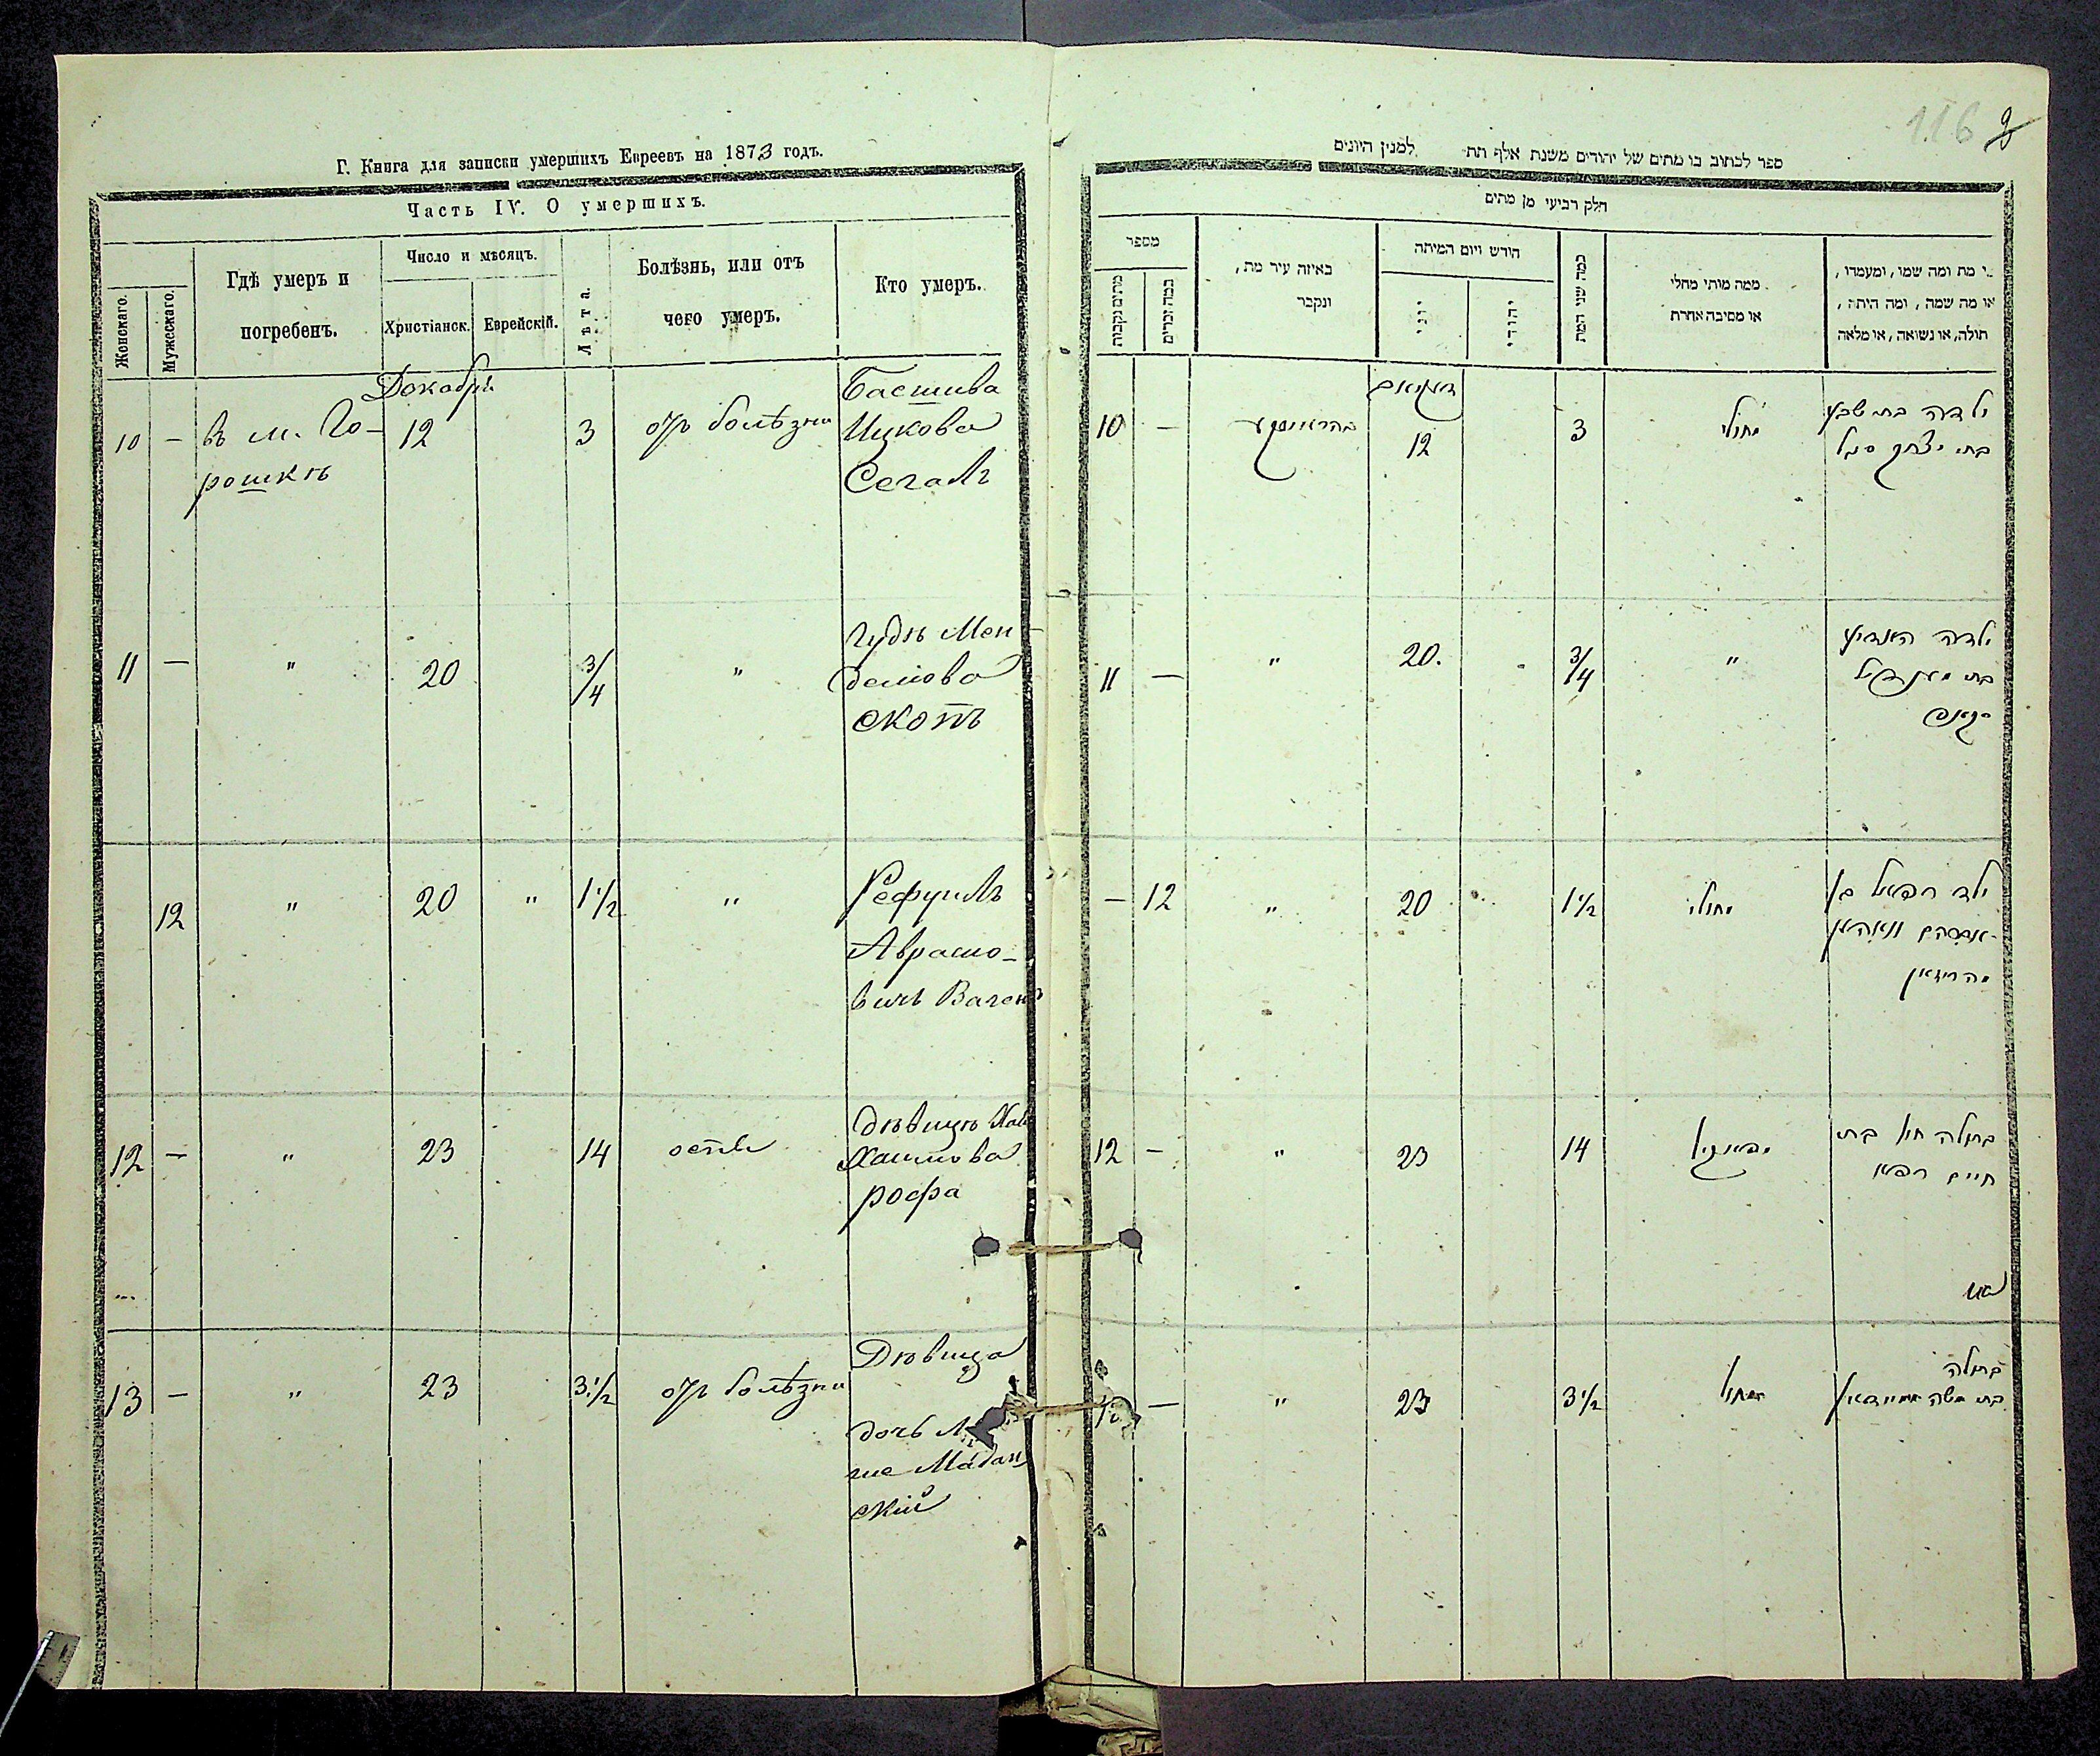 Г. Книга для записки умершихъ Евреевъ на 1873 годъ.
Часть IV. О умершихъ.
Женскаго.
Мужескаго.
Гдѣ умеръ и
погребенъ.
Число и мѣсяцъ.
Христіанск.
Еврейскій.
Лѣта.
Болѣзнь, или отъ
чего умеръ.
Кто умеръ.
Декабрь
10 – в м. Го- 12 3 отъ болѣзни
рошкѣ
Басшива
Ицкова
Сегалъ
11 – " 20 3/4 "
Гудя Мен
делиова
скотъ
12 " 20 " 1 1/2 "
Рефуилъ
Аврамо-
вичъ Ваген
12 – " 23 14 оспы
дѣвица Хая
Хаимова
рофа
13 – " 23 3 1/2 отъ болѣзни
Дѣвица
дочь
Мадан
скій
116
ספר לכתוב בו מתים של יהודים משנת אלף תת למנין היונים
חלק רביעי מן מתים
מספר
מתים נקבות
כמה זכרים
באיזה עיר מת,
ונקבר
חודש ויום המיתה
יוני
יהודי
כמה שני המת
ממה מותי מחלי
או מסיבה אחרת
מי מת ומה שמו, ומעמדו,
או מה שמה, ומה היתה,
תולה, או נשואה, או מלאה
10 – 12 3 מחולי
ילדה בת שבע
בת יצחק סגל
11 – " 20. 3/4 "
ילדה
בת מענדיל
– 12 " 20 1 1/2 מחולי
ילד רפאל בן
אברהם
12 – " 23 14
בתולה חיה בת
חיים רופא
– " 23 3 1/2 מחולי
בתולה
בת משה